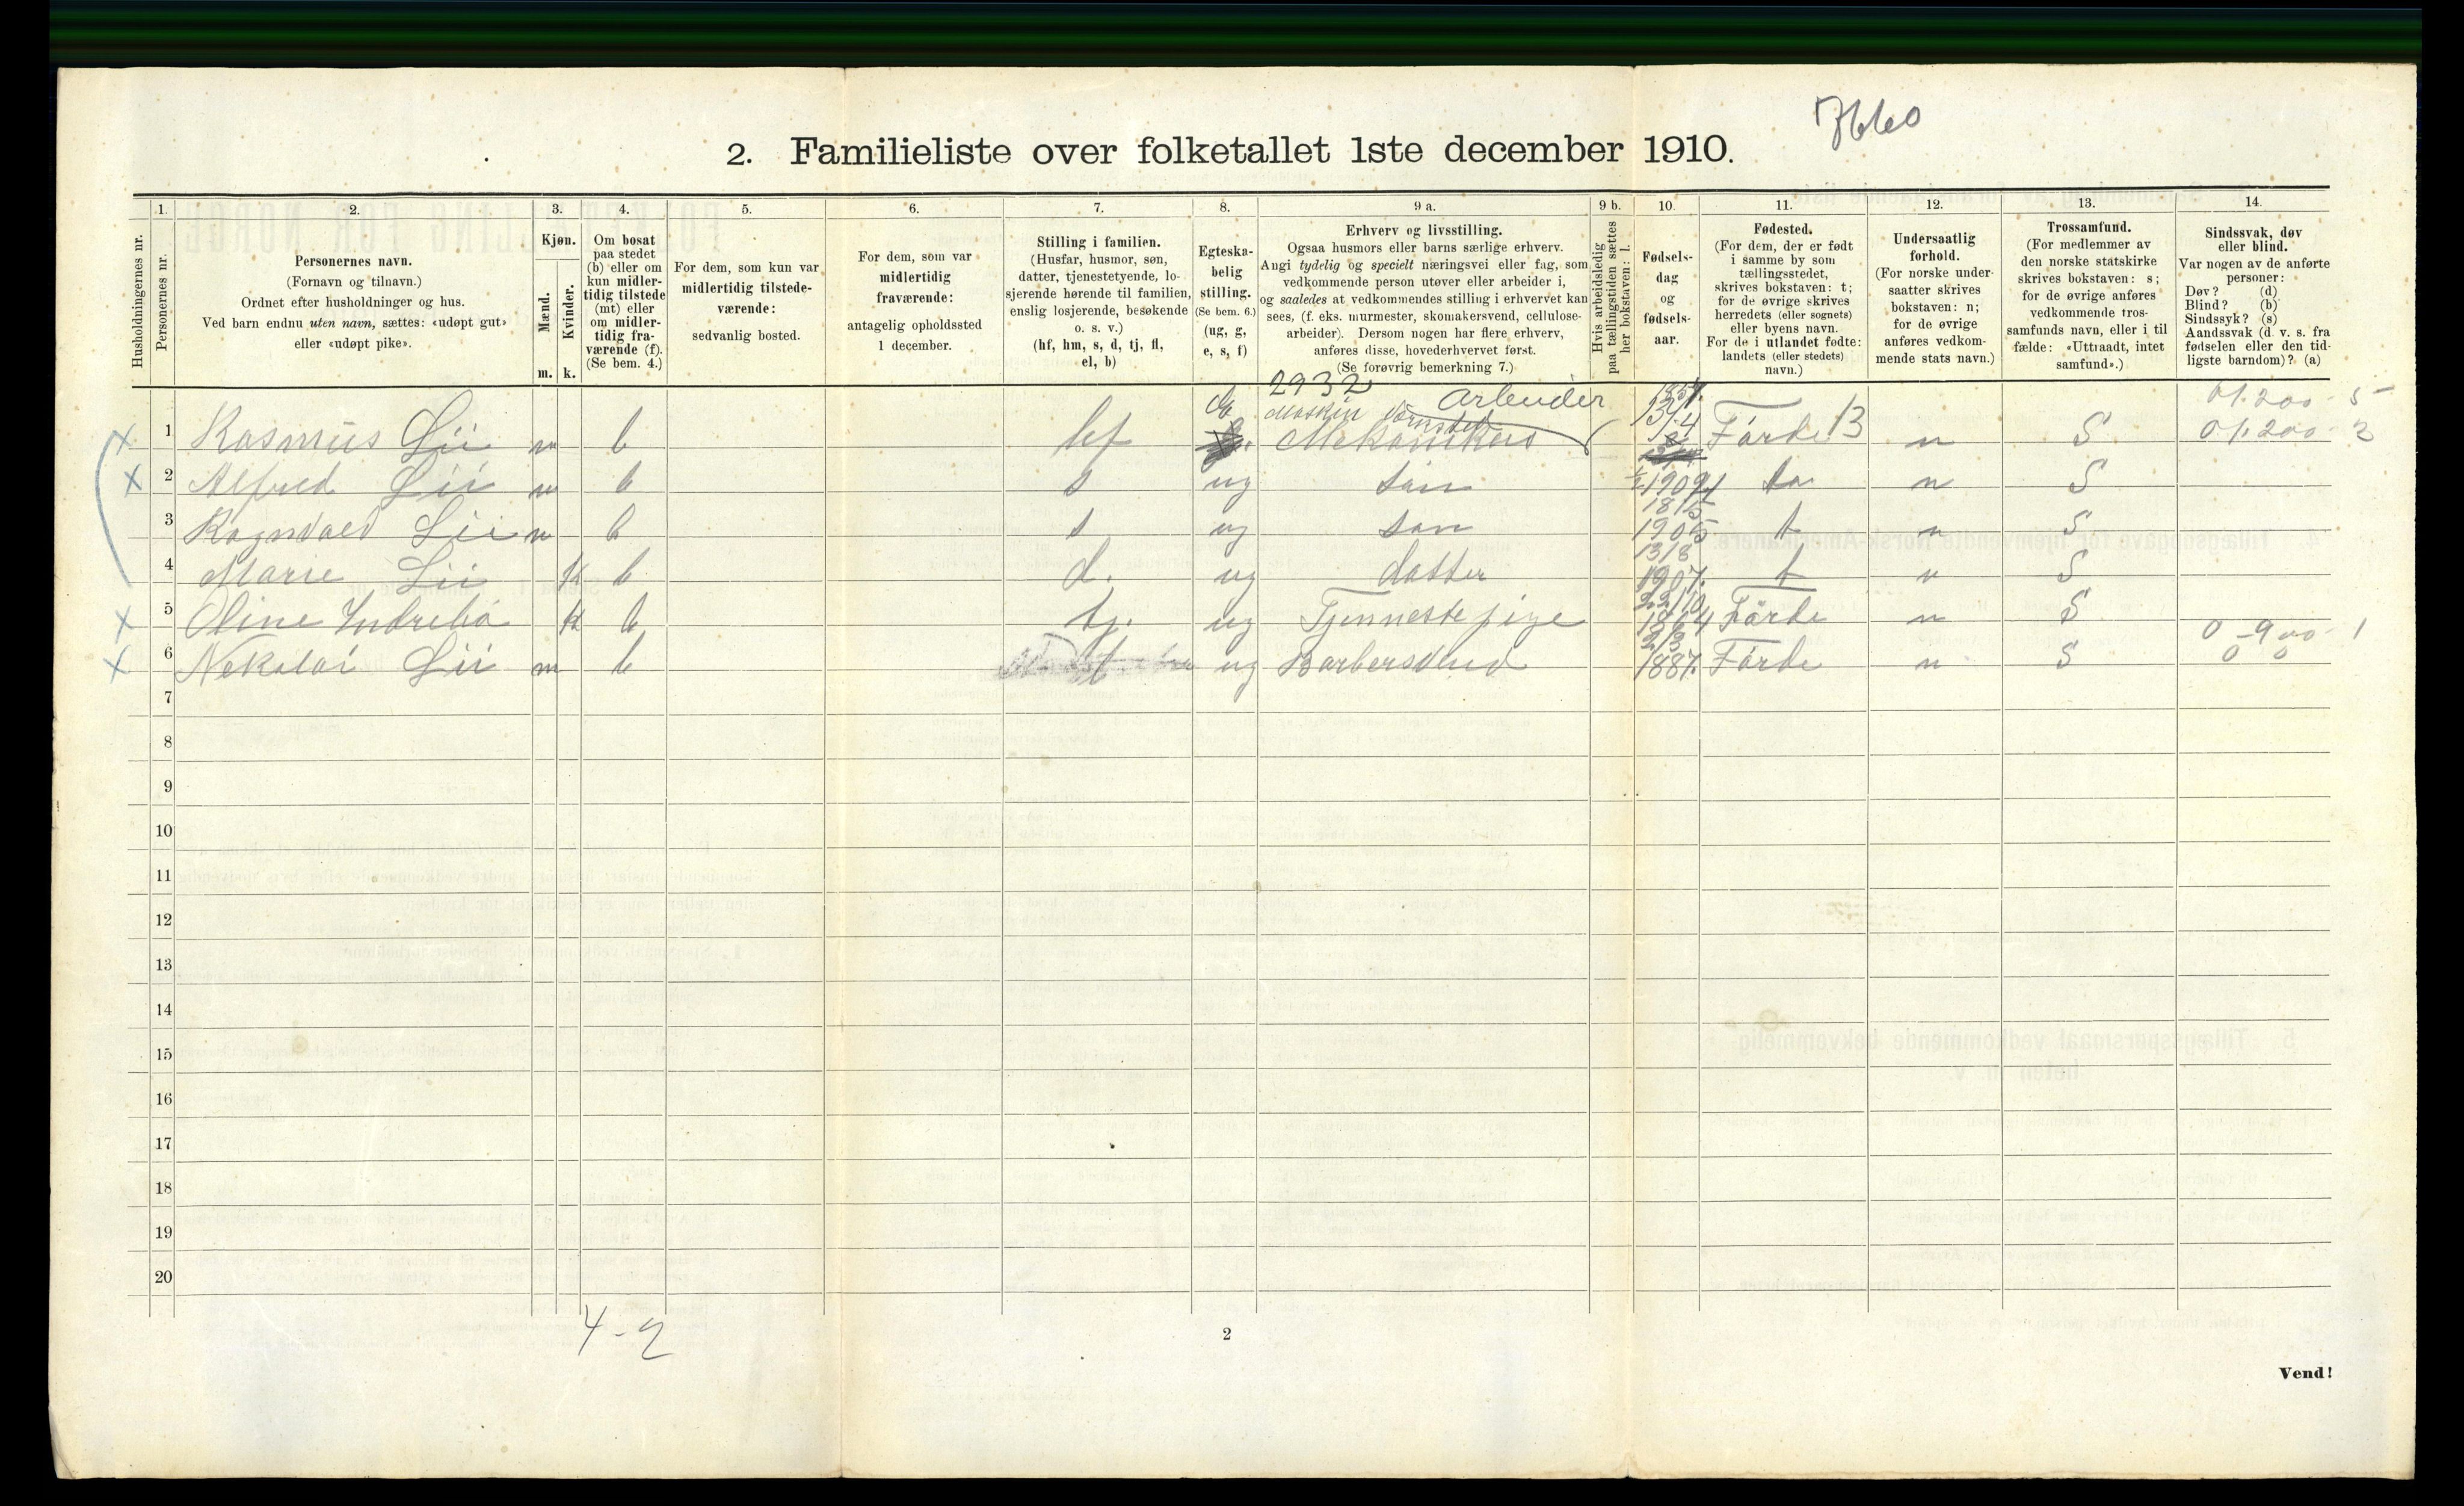 2. Familieliste over folketallet 1ste december 1910.
1. 2. 3. 4. 5. 6. 7. 8. 9 a. 9 b. 10. 11. 12. 13. 14.
Husholdningernes nr.
Personernes nr.
Personernes navn.
(Fornavn og tilnavn.)
Ordnet efter husholdninger og hus.
Ved barn endnu uten navn, sættes: «udøpt gut»
eller «udøpt pike».
Kjøn.
Mænd.
Kvinder.
m. k.
Om bosat
paa stedet
(b) eller om
kun midler-
tidig tilstede
(mt) eller
om midler-
tidig fra-
værende (f).
(Se bem. 4.)
For dem, som kun var
midlertidig tilstede-
værende:
sedvanlig bosted.
For dem, som var
midlertidig
fraværende:
antagelig opholdssted
1 december.
Stilling i familien.
(Husfar, husmor, søn,
datter, tjenestetyende, lo-
sjerende hørende til familien,
enslig losjerende, besøkende
o. s. v.)
(hf, hm, s, d, tj, fl,
el, b)
Egteska-
belig
stilling.
(Se bem. 6.)
(ug, g,
e, s, f)
Erhverv og livsstilling.
Ogsaa husmors eller barns særlige erhverv.
Angi tydelig og specielt næringsvei eller fag, som
vedkommende person utøver eller arbeider i,
og saaledes at vedkommendes stilling i erhvervet kan
sees, (f. eks. murmester, skomakersvend, cellulose-
arbeider). Dersom nogen har flere erhverv,
anføres disse, hovederhvervet først.
(Se forøvrig bemerkning 7.)
Hvis arbeidsledig
paa tællingstiden sættes
her bokstaven: l.
Fødsels-
dag
og
fødsels-
aar.
Fødested.
(For dem, der er født
i samme by som
tællingsstedet,
skrives bokstaven: t;
for de øvrige skrives
herredets (eller sognets)
eller byens navn.
For de i utlandet fødte:
landets (eller stedets)
navn.)
Undersaatlig
forhold.
(For norske under-
saatter skrives
bokstaven: n;
for de øvrige
anføres vedkom-
mende stats navn.)
Trossamfund.
(For medlemmer av
den norske statskirke
skrives bokstaven: s;
for de øvrige anføres
vedkommende tros-
samfunds navn, eller i til
fælde: «Uttraadt, intet
samfund».)
Sindssvak, døv
eller blind.
Var nogen av de anførte
personer:
Døv? (d)
Blind? (b)
Sindssyk? (s)
Aandssvak (d. v. s. fra
fødselen eller den tid-
ligste barndom)? (a)
2932 arbeider
1 Rasmus Lii m b hf Mekanikus 13/4 Förde 13 n S
2 Alfred Lii m b s ug sön n S
3 Ragnvald Lii m b s ug sön 18/5 1905 t n S
4 Marie Lii k b d. ug datter 13/8 1907. t n S
5 Oline Indrebö k b tj. ug Tjenestepige 22/10 1864 Förde n S
6 Nekolai Lii m b ug Barbersvend 1887. Förde n S
7
8
9
10
11
12
13
14
15
16
17
18
19
20
4-2
2
Vend!